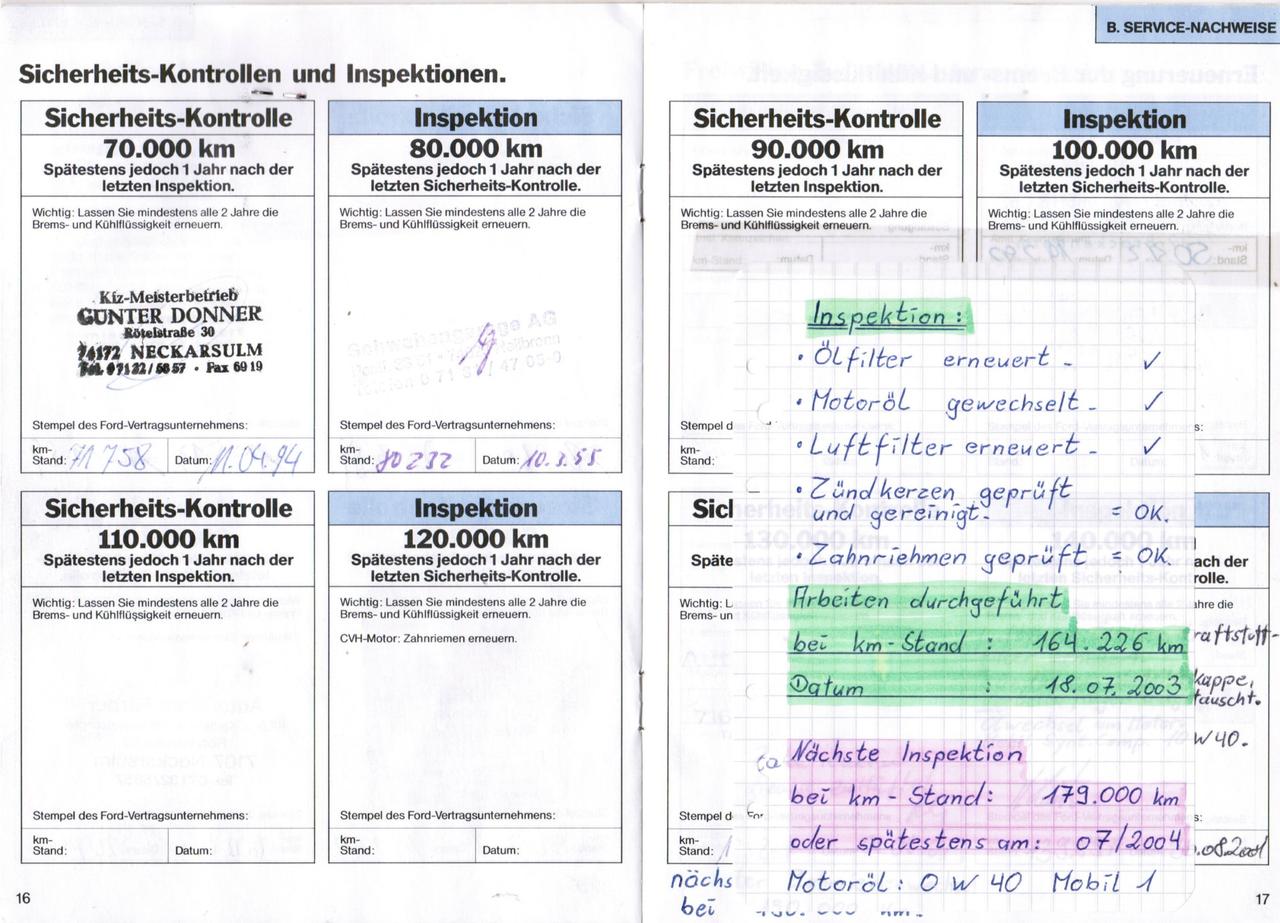 B. SERVICE-NACHWEISE
Sicherheits-Kontrollen und Inspektionen.
Sicherheits-Kontrolle
70.000 km
Spätestens jedoch 1 Jahr nach der
letzten Inspektion.
Wichtig: Lassen Sie mindestens alle 2 Jahre die
Brems- und Kühlflüssigkeit erneuern.
Kfz-Meisterbetrieb
GÜNTER DONNER
Rötelstraße 30
74172 NECKARSULM
Tel. 07132/5657 · Fax 6919
Stempel des Ford-Vertragsunternehmens:
km-
Stand: 71 758 Datum: 11.04.94
Inspektion
80.000 km
Spätestens jedoch 1 Jahr nach der
letzten Sicherheits-Kontrolle.
Wichtig: Lassen Sie mindestens alle 2 Jahre die
Brems- und Kühlflüssigkeit erneuern.
AG
Stempel des Ford-Vertragsunternehmens:
km-
Stand: 80232 Datum: 10.
Sicherheits-Kontrolle
90.000 km
Spätestens jedoch 1 Jahr nach der
letzten Inspektion.
Wichtig: Lassen Sie mindestens alle 2 Jahre die
Brems- und Kühlflüssigkeit erneuern.
Stempel d
km-
Stand:
Inspektion
100.000 km
Spätestens jedoch 1 Jahr nach der
letzten Sicherheits-Kontrolle.
Wichtig: Lassen Sie mindestens alle 2 Jahre die
Brems- und Kühlflüssigkeit erneuern.
s:
Sicherheits-Kontrolle
110.000 km
Spätestens jedoch 1 Jahr nach der
letzten Inspektion.
Wichtig: Lassen Sie mindestens alle 2 Jahre die
Brems- und Kühlflüssigkeit erneuern.
Stempel des Ford-Vertragsunternehmens:
km-
Stand: Datum:
Inspektion
120.000 km
Spätestens jedoch 1 Jahr nach der
letzten Sicherheits-Kontrolle.
Wichtig: Lassen Sie mindestens alle 2 Jahre die
Brems- und Kühlflüssigkeit erneuern.
CVH-Motor: Zahnriemen erneuern.
Stempel des Ford-Vertragsunternehmens:
km-
Stand: Datum:
Sicherheits-Kontrolle
130.000 km
Späte
Wichtig: L
Brems- un
Stempel d
km-
Stand:
nächs
bei
140.000 km
nach der
rolle.
ahre die
raftstoff-
kappe,
tauscht.
W 40.
s:
.08.2001
Inspektion:
· Ölfilter erneuert - ✓
· Motoröl gewechselt - ✓
· Luftfilter erneuert - ✓
· Zündkerzen geprüft
und gereinigt. = OK.
· Zahnriehmen geprüft = OK.
Arbeiten durchgeführt
bei km-Stand : 164.226 km
Datum : 18.07.2003
Nächste Inspektion
bei km-Stand: 179.000 km
oder spätestens am: 07/2004
Motoröl: 0 W 40 Mobil 1
16
17